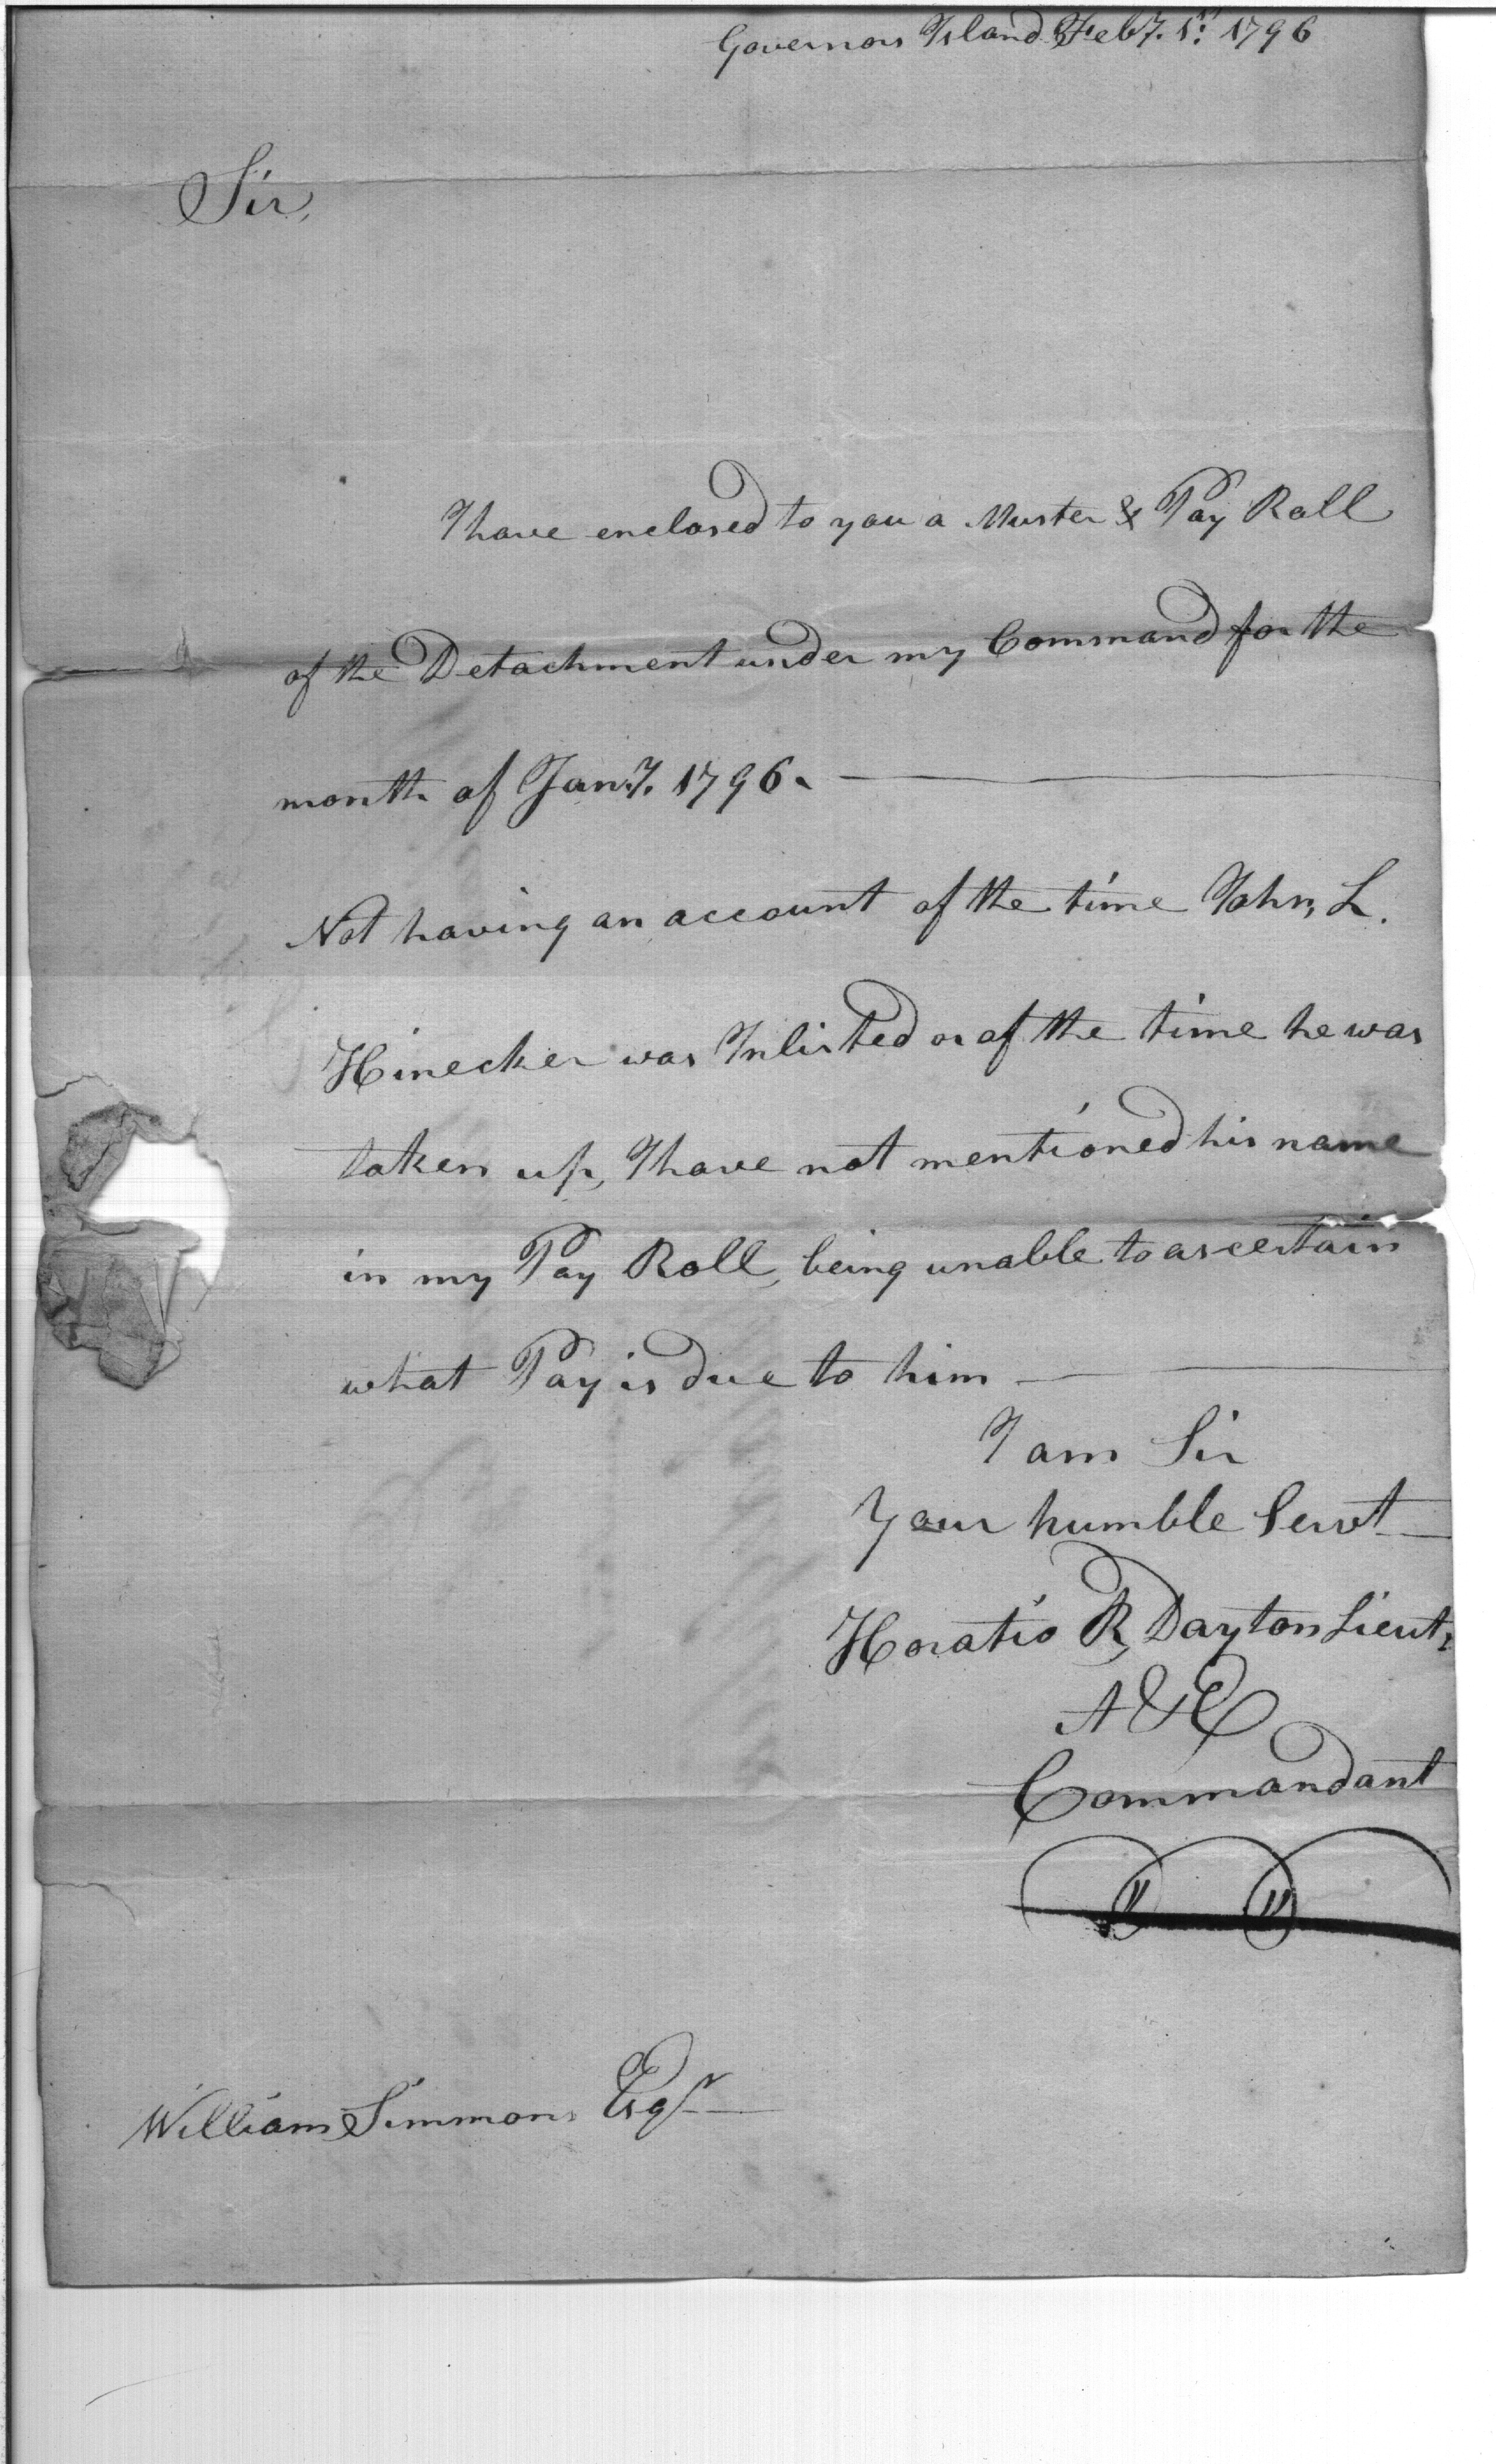 Governors Island Feby. 1st. 1796
Sir,
I have enclosed to you a Muster & Pay Roll
of the Detachment under my Command for the
month of Jany. 1796.
Not having an account of the time John, L.
Hinecker was Inlisted or of the time he was
taken up, I have not mentioned his name
in my Pay Roll, being unable to ascertain
what Pay is due to him
I am Sir
Your humble Servt
Horatio R, Dayton Lieut,
A & E
Commandant
William Simmons Esqr